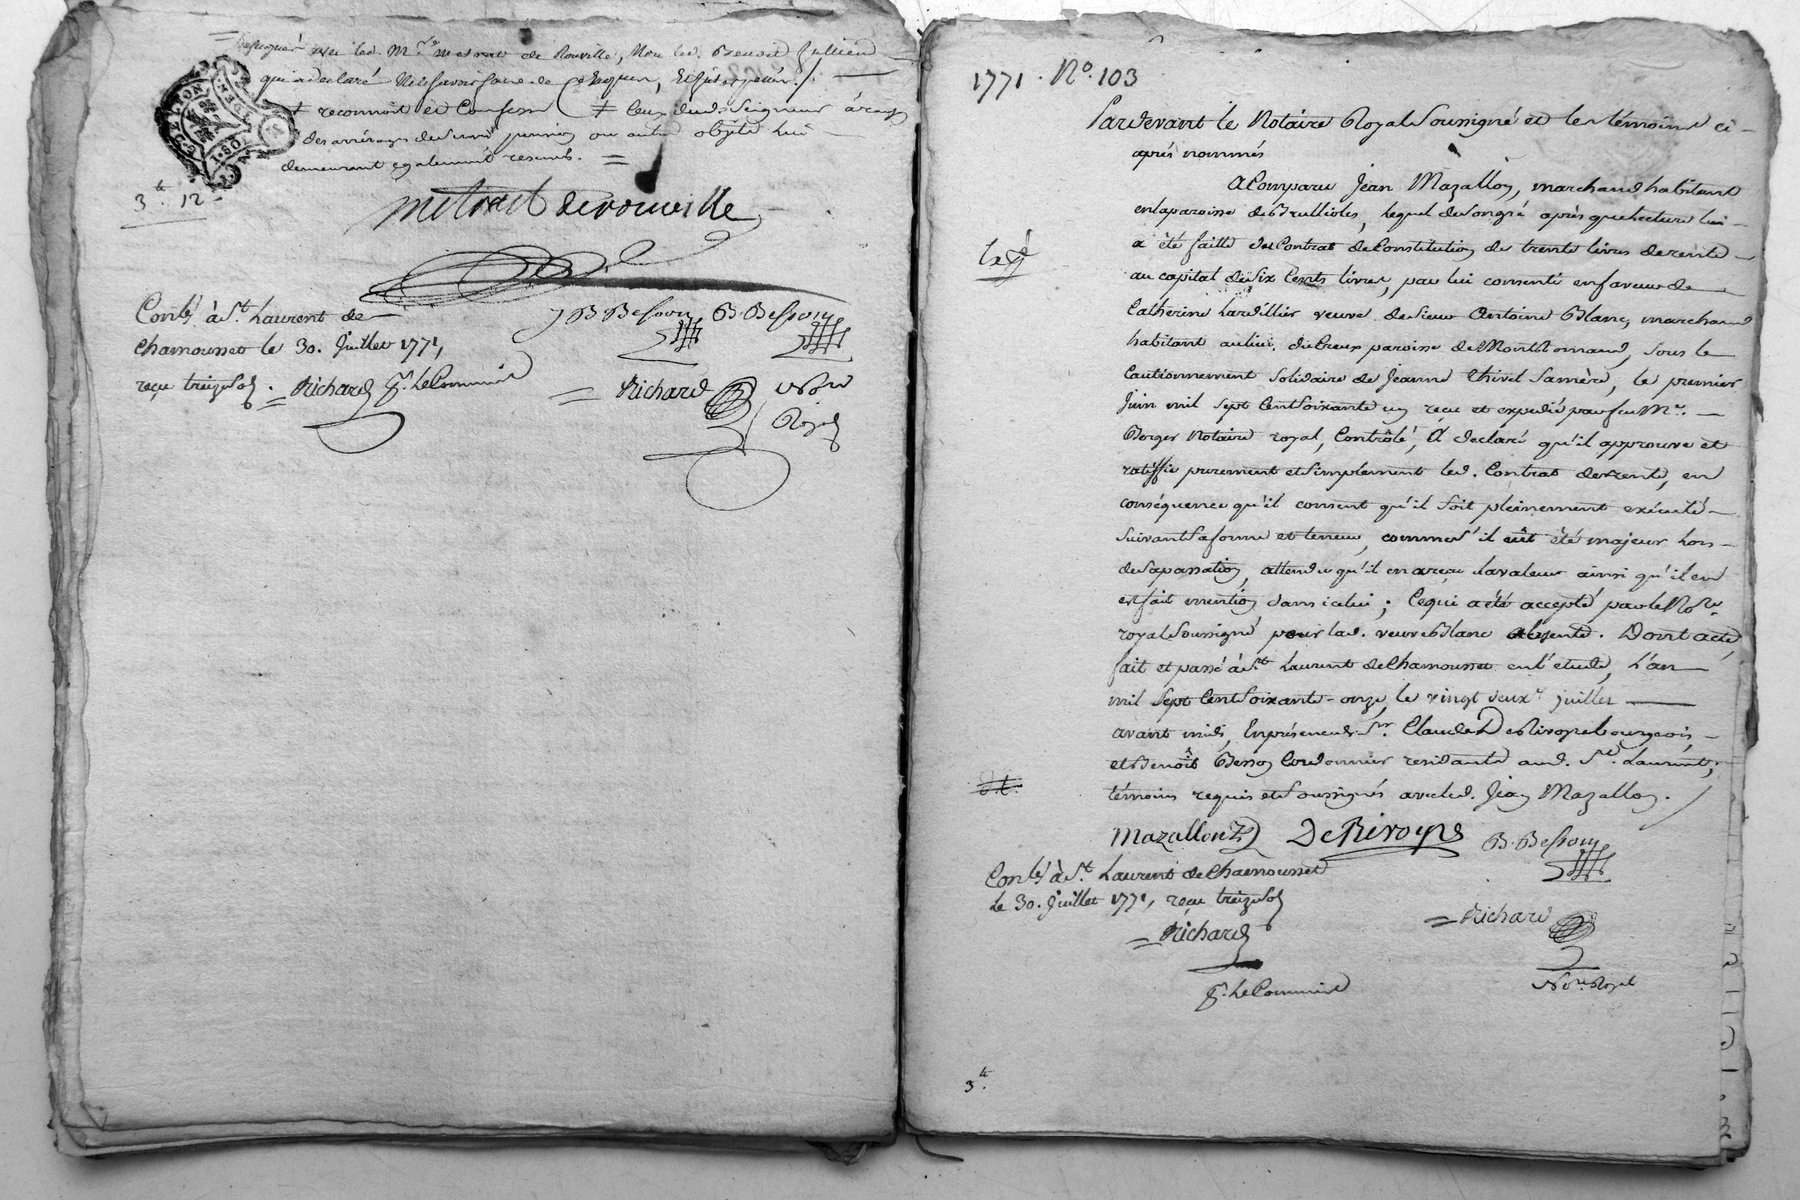 soussignés avec led. Mr. metrat de Rouville, Non led. Benoit Jullien
qui a declaré ne le savoir faire de ce requis, et
+ reconnoit et confesse + ceux dud. Seigneur
des arrérages de ou autres objets lui
demeurant egalement reservés. =
G. DE LYON
3tt. 12s
metrat derouville
Conlé. à St. Laurent de
chamousset le 30. Juillet 1771,
reçu treize sols. = Richard pr. le Commis
J B Bessony B. Bessony
= Richard Nore
Royal
1771. No. 103
Pardevant le Notaire Royal Soussigné et les témoins ci-
après nommés
A Comparu Jean Mazallon, marchand habitant
en la paroisse de Brullioles, lequel de son gré après que lecture lui
a été faitte du Contrat de Constitution de trente livres de rente
au capital de six Cents livres, par lui consenti en faveur de
Catherine Lardillier veuve de sieur Antoine Blanc, marchand
habitant au lieu du Creux paroisse de Montromand, sous le
Cautionnement solidaire de Jeanne Thivel sa mère, le premier
Juin mil sept Cent soixante un reçu et expedié par feu Mr.
Berger Notaire royal, Contrôlé, A declaré qu'il approuve et
ratiffie purement et simplement led. Contrat de rente, en
conséquence qu'il consent qu'il soit pleinement exécuté
suivant sa forme et teneur, comme s'il eût été majeur lors
de sa passation, attendu qu'il en a reçu la valeur ainsi qu'il en
est fait mention dans icelui; Ce qui a été accepté par le Nore.
royal Soussigné pour lad. veuve Blanc absente. Dont acte,
fait et passé à St. Laurent de Chamousset en l'étude, L'an
mil sept Cent soixante-onze, le vingt deuxe. juillet
avant midi, En présence de Sr. Claude Derivoyre bourgeois,
et Benoît Besson Cordonnier residants aud. St. Laurent,
témoins requis et Soussignés avec led. Jean Mazallon.
Mazallon DeRivoyre B. Bessony
Conlé. à St. Laurent de Chamousset
Le 30. Juillet 1771, reçu treize sols
= Richard
pr. le Commis
= Richard
Nore. Royal
3tt.